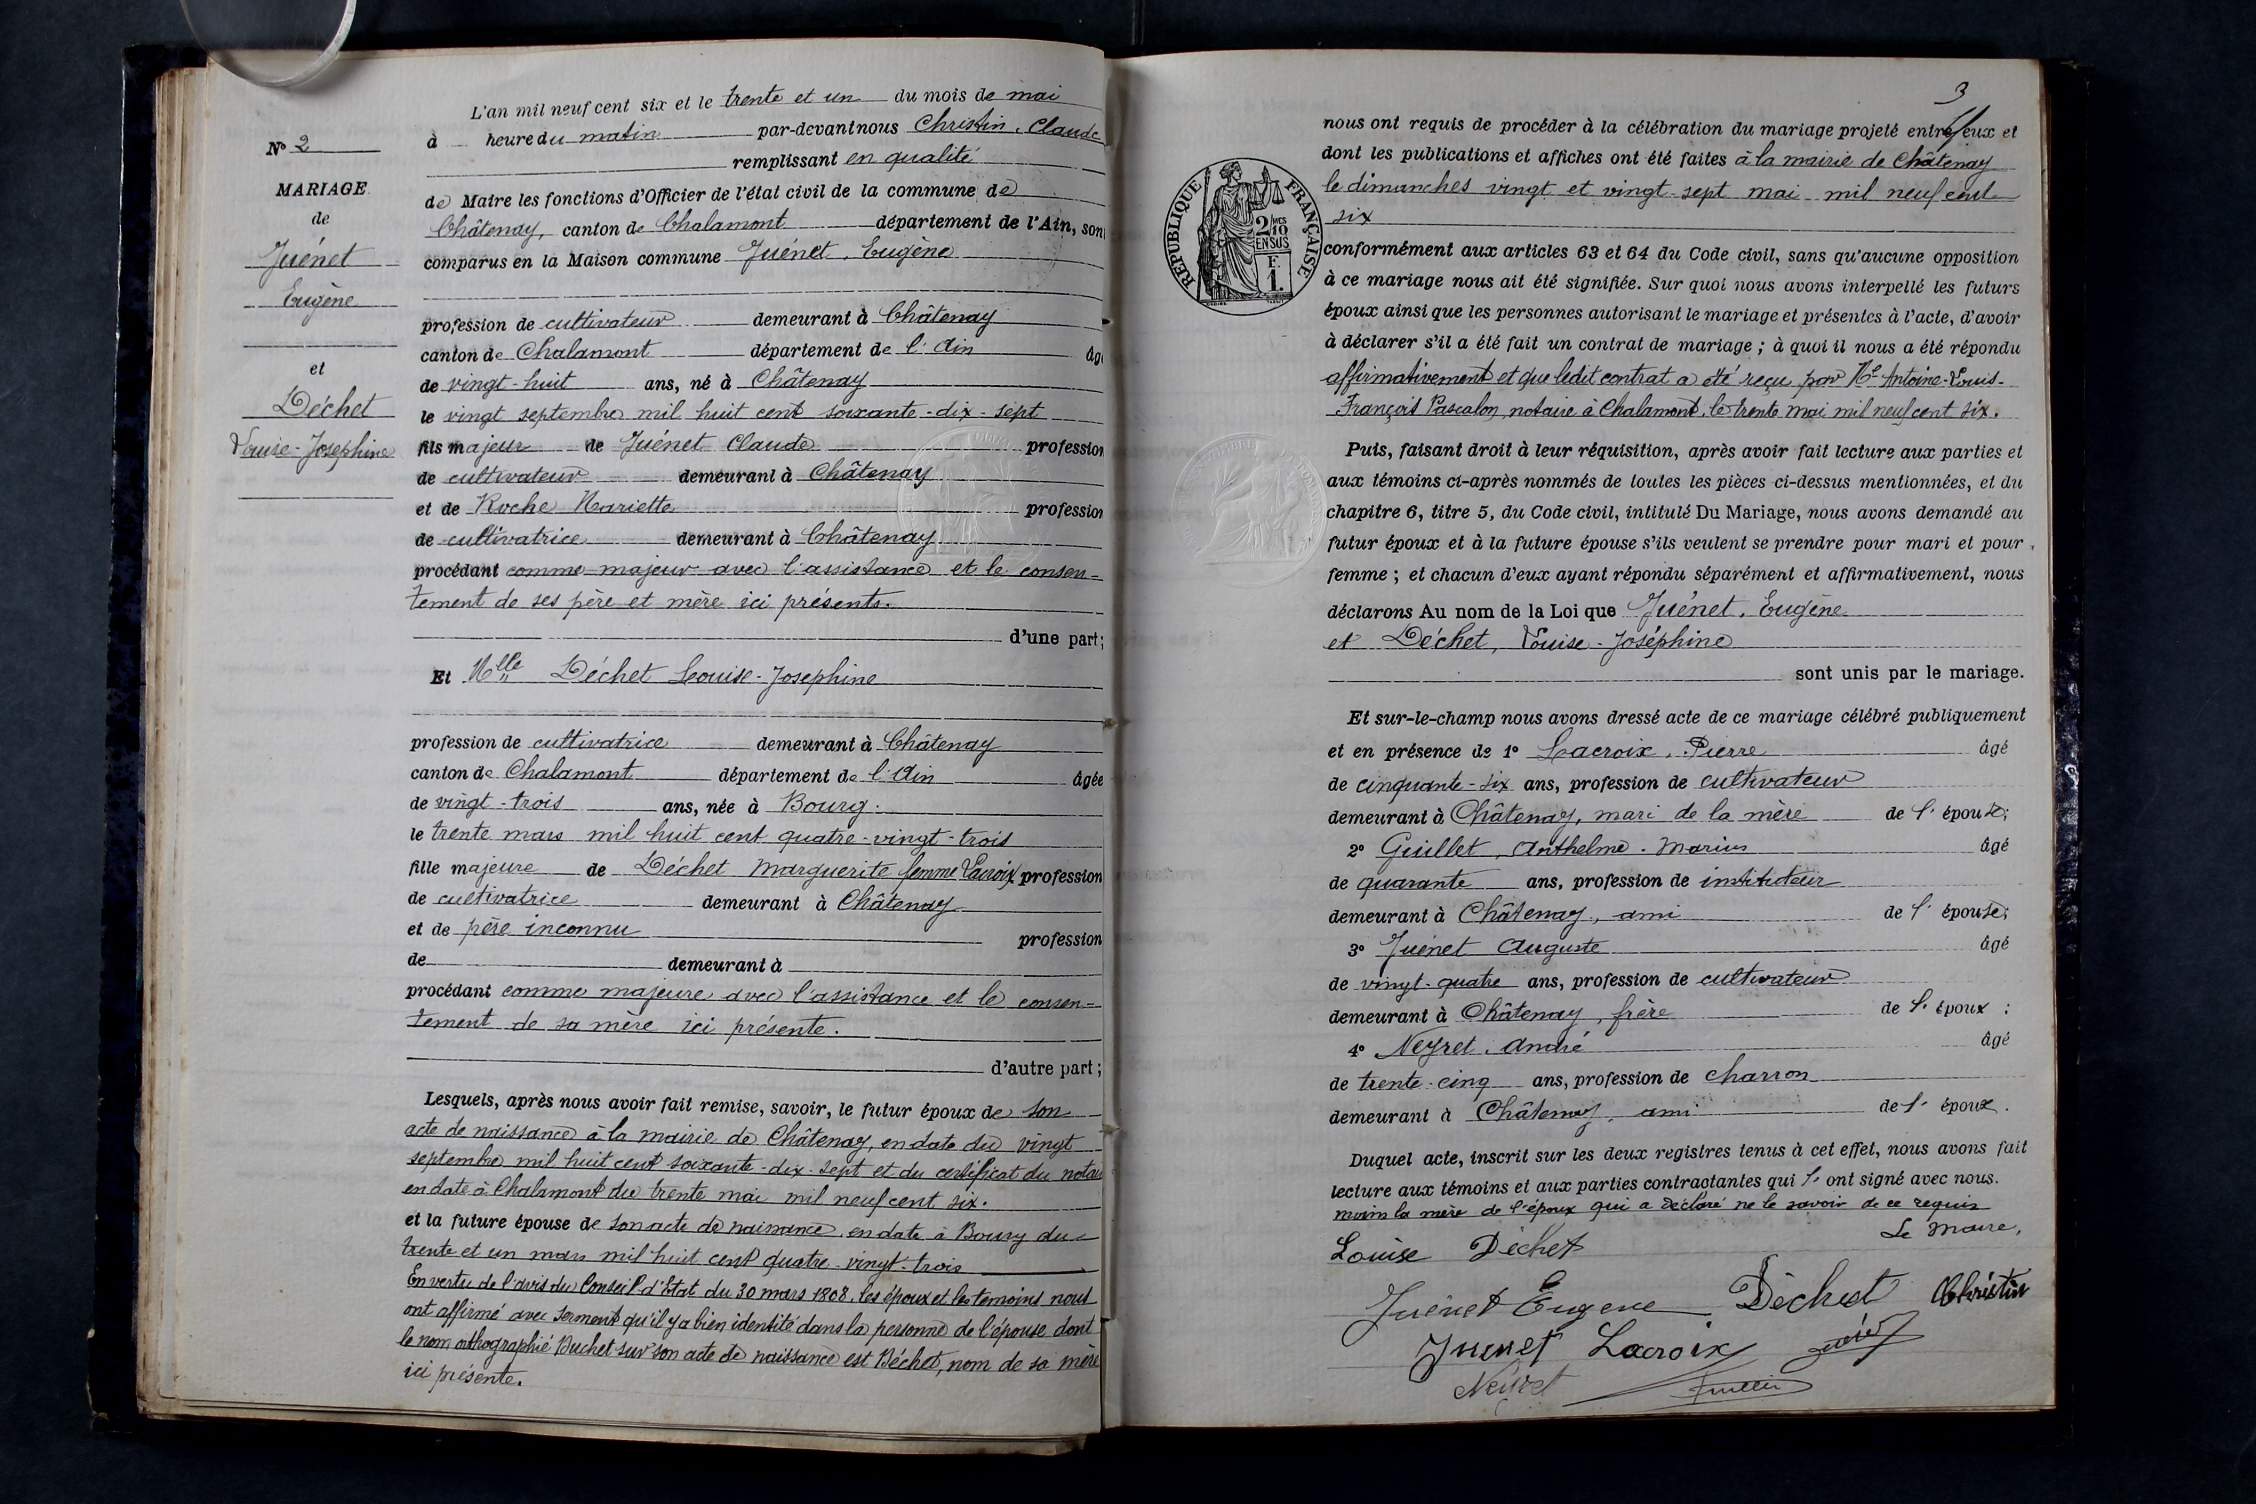 N° 2
MARIAGE
de
Juénet
Eugène
et
Déchet
Louise-Josephine
L'an mil neuf cent six et le trente et un du mois de mai
à heure du matin par-devant nous Christin, Claude
remplissant en qualité
de Maire les fonctions d'Officier de l'état civil de la commune de
Châtenay, canton de Chalamont département de l'Ain, son
comparus en la Maison commune Juénet, Eugène
profession de cultivateur demeurant à Châtenay
canton de Chalamont département de l'Ain âg
de vingt-huit ans, né à Châtenay
le vingt septembre mil huit cent soixante-dix-sept
fils majeur de Juénet Claude profession
de cultivateur demeurant à Châtenay
et de Roche Mariette profession
de cultivatrice demeurant à Châtenay
procédant comme majeur avec l'assistance et le consen-
tement de ses père et mère ici présents.
d'une part;
Et Melle Déchet Louise-Josephine
profession de cultivatrice demeurant à Châtenay
canton de Chalamont département de l'Ain âgée
de vingt-trois ans, née à Bourg.
le trente mars mil huit cent quatre-vingt-trois
fille majeure de Déchet Marguerite femme Lacroix profession
de cultivatrice demeurant à Châtenay
et de père inconnu profession
de demeurant à
procédant comme majeure avec l'assistance et le consen-
tement de sa mère ici présente.
d'autre part;
Lesquels, après nous avoir fait remise, savoir, le futur époux de son
acte de naissance à la mairie de Châtenay, en date du vingt
septembre mil huit cent soixante-dix-sept et du certificat du notaire
en date à Chalamont du trente mai mil neuf cent six.
et la future épouse de son acte de naissance, en date à Bourg du
trente et un mars mil huit cent quatre-vingt-trois
En vertu de l'avis du Conseil d'Etat du 30 mars 1808, les époux et les temoins nous
ont affirmé avec serment qu'il y a bien identité dans la personne de l'épouse dont
le nom orthographié Duchet sur son acte de naissance est Déchet, nom de sa mère
ici présente.
3
RÉPUBLIQUE FRANÇAISE
2/10 EN SUS
F.
1.
nous ont requis de procéder à la célébration du mariage projeté entre eux et
dont les publications et affiches ont été faites à la mairie de Châtenay
le dimanches vingt et vingt-sept mai mil neuf cent
six
conformément aux articles 63 et 64 du Code civil, sans qu'aucune opposition
à ce mariage nous ait été signifiée. Sur quoi nous avons interpellé les futurs
époux ainsi que les personnes autorisant le mariage et présentes à l'acte, d'avoir
à déclarer s'il a été fait un contrat de mariage; à quoi il nous a été répondu
affirmativement et que ledit contrat a été reçu par Me Antoine-Louis-
François Pascalon, notaire à Chalamont, le trente mai mil neuf cent six.
Puis, faisant droit à leur réquisition, après avoir fait lecture aux parties et
aux témoins ci-après nommés de toutes les pièces ci-dessus mentionnées, et du
chapitre 6, titre 5, du Code civil, intitulé Du Mariage, nous avons demandé au
futur époux et à la future épouse s'ils veulent se prendre pour mari et pour
femme; et chacun d'eux ayant répondu séparément et affirmativement, nous
déclarons Au nom de la Loi que Juénet, Eugène
et Déchet, Louise-Joséphine
sont unis par le mariage.
Et sur-le-champ nous avons dressé acte de ce mariage célébré publiquement
et en présence de 1° Lacroix, Pierre âgé
de cinquante-six ans, profession de cultivateur
demeurant à Châtenay, mari de la mère de l'épouse;
2° Guillet, Anthelme-Marius âgé
de quarante ans, profession de instituteur
demeurant à Châtenay, ami de l'épouse;
3° Juénet Auguste âgé
de vingt-quatre ans, profession de cultivateur
demeurant à Châtenay, frère de l'époux;
4° Neyret, André âgé
de trente-cinq ans, profession de charron
demeurant à Châtenay, ami de l'époux.
Duquel acte, inscrit sur les deux registres tenus à cet effet, nous avons fait
lecture aux témoins et aux parties contractantes qui l' ont signé avec nous.
moins la mère de l'époux qui a déclaré ne le savoir de ce requis
Le Maire,
Louise Déchet
Juénet Eugene Déchet Christin
Juenet Lacroix
Neyret